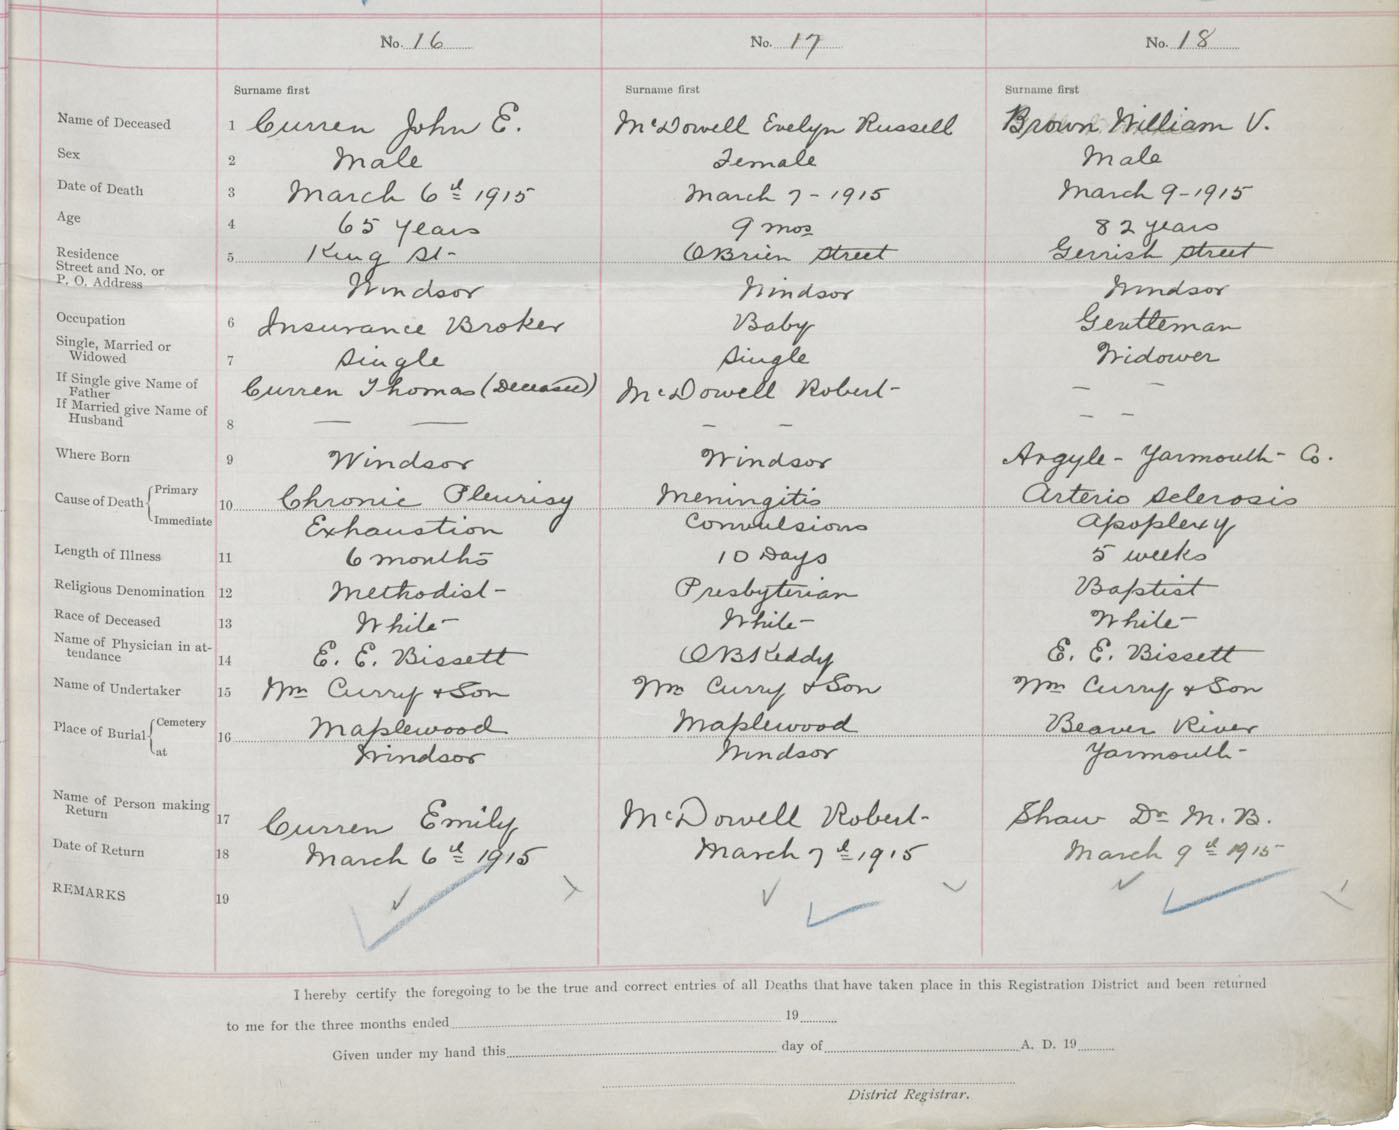 No. 16 No. 17 No. 18
Surname first Surname first Surname first
Name of Deceased 1 Curren John E. McDowell Evelyn Russell Brown William V.
Sex 2 Male Female Male
Date of Death 3 March 6th 1915 March 7 - 1915 March 9 - 1915
Age 4 65 years 9 mos 82 years
Residence 5 King St - O'Brien Street Gerrish Street
Street and No. or
P. O. Address Windsor Windsor Windsor
Occupation 6 Insurance Broker Baby Gentleman
Single, Married or
Widowed 7 Single Single Widower
If Single give Name of
Father Curren Thomas (Deceased) McDowell Robert - — —
If Married give Name of
Husband 8 — — — — — —
Where Born 9 Windsor Windsor Argyle - Yarmouth - Co.
Cause of Death Primary 10 Chronic Pleurisy Meningitis Arterio Sclerosis
Immediate Exhaustion Convulsions Apoplexy
Length of Illness 11 6 months 10 Days 5 weeks
Religious Denomination 12 Methodist - Presbyterian Baptist
Race of Deceased 13 White - White - White -
Name of Physician in at-
tendance 14 E. E. Bissett O B Keddy E. E. Bissett
Name of Undertaker 15 Wm Curry & Son Wm Curry & Son Wm Curry & Son
Place of Burial Cemetery 16 Maplewood Maplewood Beaver River
at Windsor Windsor Yarmouth -
Name of Person making
Return 17 Curren Emily McDowell Robert - Shaw Dr M. B.
Date of Return 18 March 6th 1915 March 7th 1915 March 9th 1915
REMARKS 19
I hereby certify the foregoing to be the true and correct entries of all Deaths that have taken place in this Registration District and been returned
to me for the three months ended 19
Given under my hand this day of A. D. 19
District Registrar.